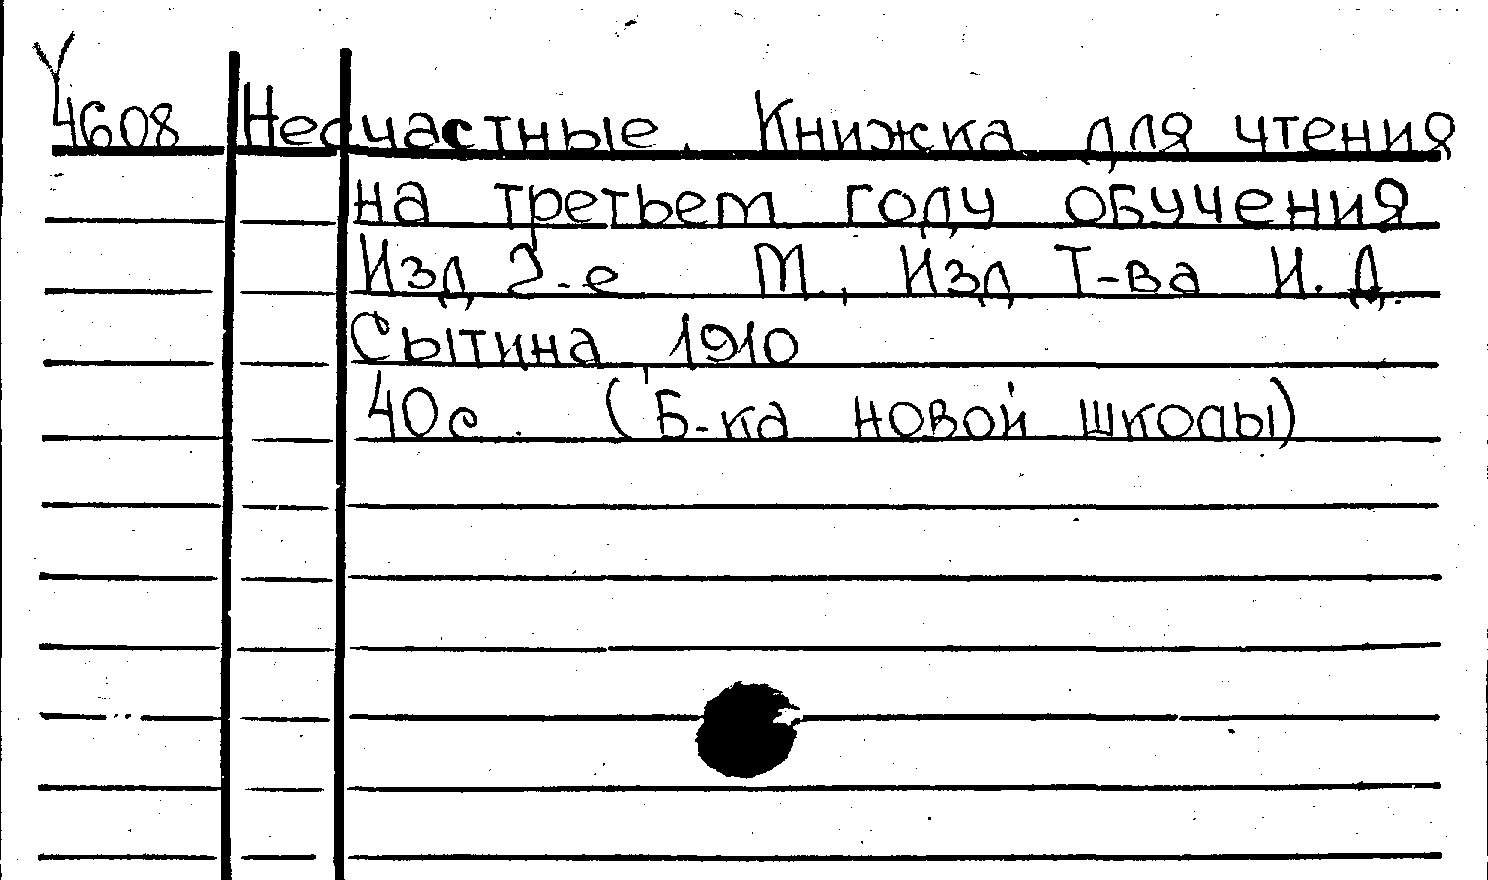 У
4608 Несчастные. Книжка для чтения
на третьем году обучения
Изд 2-е М., Изд Т-ва И. Д.
Сытина 1910
40с. (Б-ка новой школы)